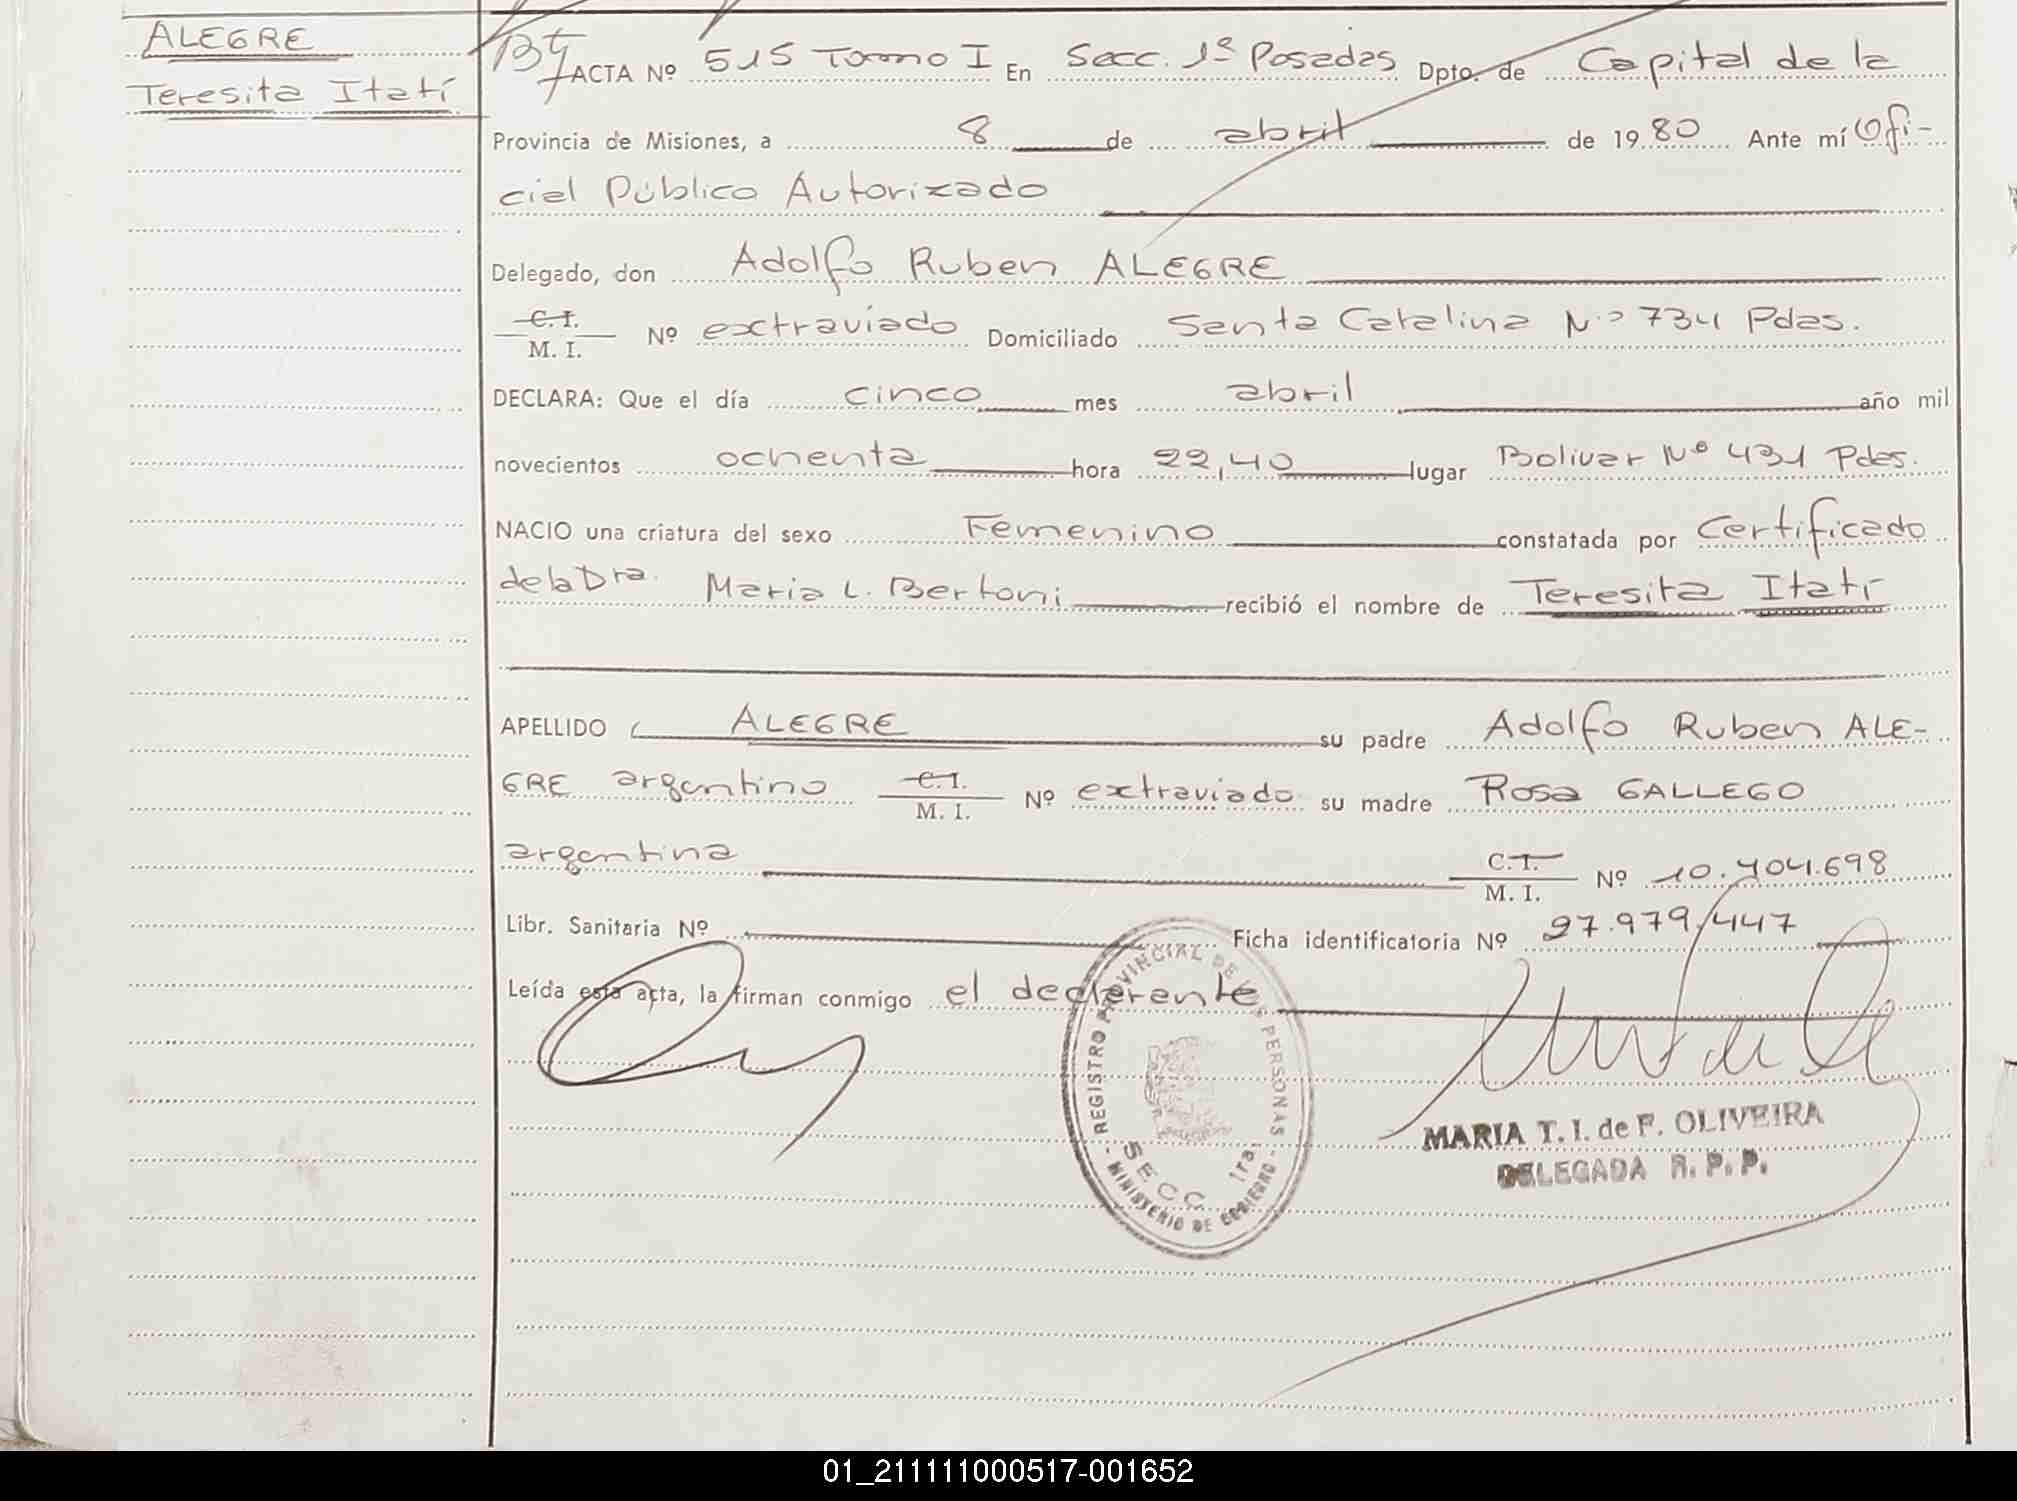 ALEGRE
Teresita Itatí
ACTA Nº 515 Tomo I En Secc. 1ª Posadas Dpto. de Capital de la
Provincia de Misiones, a 8 de abril de 1980 Ante mí Ofi-
cial Público Autorizado
Delegado, don Adolfo Ruben ALEGRE
C. I.
M. I. Nº extraviado Domiciliado Santa Catalina Nº 734 Pdas.
DECLARA: Que el día cinco mes abril año mil
novecientos ochenta hora 22,40 lugar Bolivar Nº 431 Pdas.
NACIO una criatura del sexo Femenino constatada por Certificado
de la Dra. Maria L. Bertoni recibió el nombre de Teresita Itatí
APELLIDO ALEGRE su padre Adolfo Ruben ALE-
GRE argentino C. I. M. I. Nº extraviado su madre Rosa GALLEGO
argentina C. I. M. I. Nº 10.404.698
Libr. Sanitaria Nº Ficha identificatoria Nº 27.979.447
Leída esta acta, la firman conmigo el declarante
REGISTRO PROVINCIAL DE LAS PERSONAS
SECC 1ra.
- MINISTERIO DE GOBIERNO -
MARIA T. I. de F. OLIVEIRA
DELEGADA R. P. P.
01_211111000517-001652